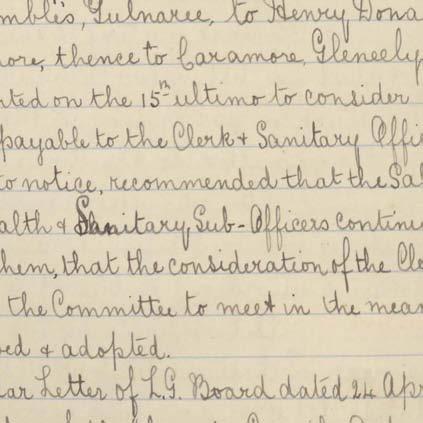 mbles, Gulnaree, to Henry Dona
ore, thence to Caramore, Gleneely
ted on the 15th ultimo to consider
payable to the Clerk & Sanitary Offi
to notice, recommended that the Sal
alth & Sanitary Sub-Officers continu
hem, that the consideration of the Cle
the Committee to meet in the mean
ed & adopted.
ar Letter of L.G. Board dated 24 Apr